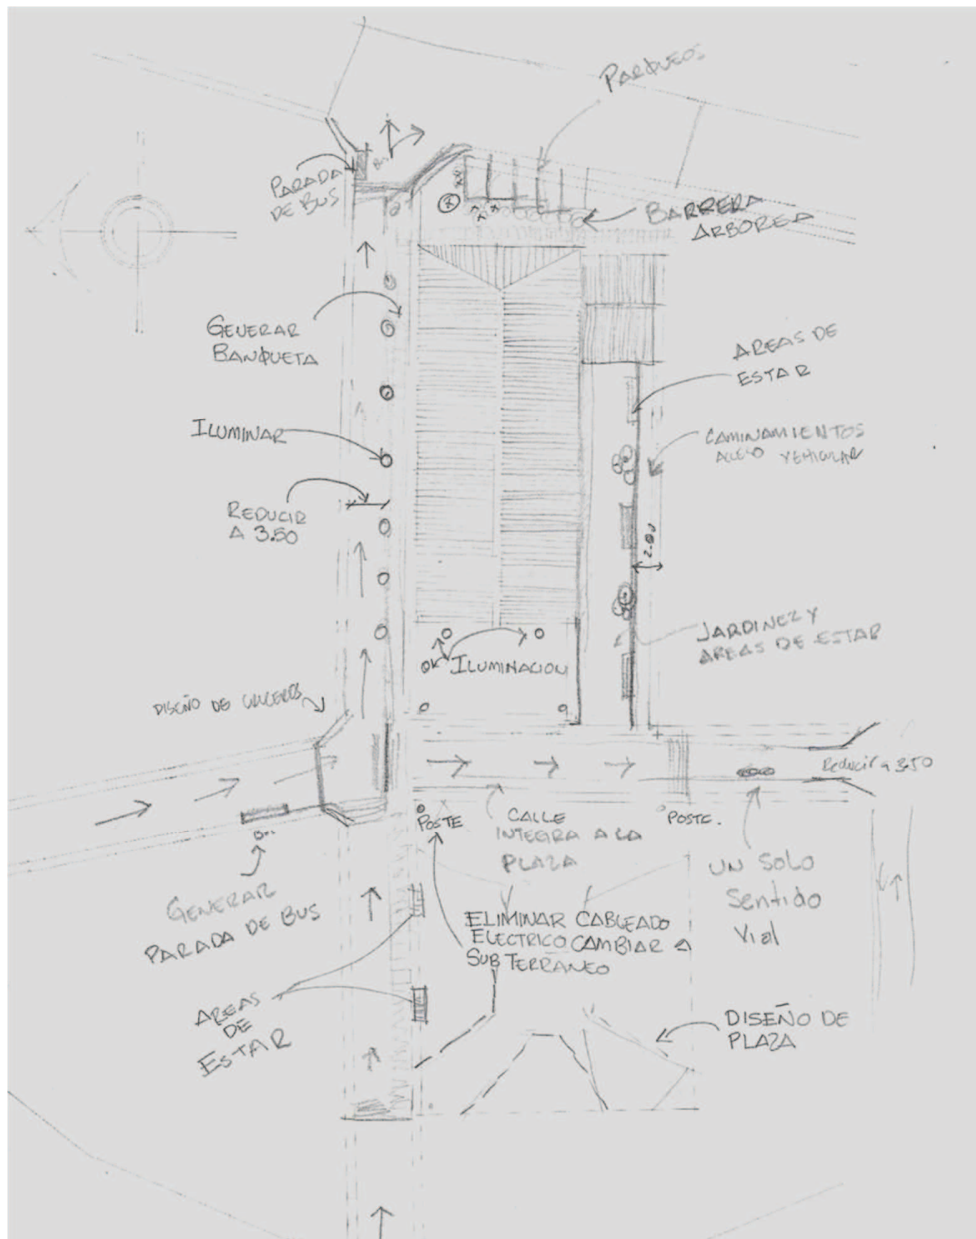 PARQUEOS
PARADA
DE BUS
BARRERA
ARBOREA
GENERAR
BANQUETA
AREAS DE
ESTAR
ILUMINAR
CAMINAMIENTOS
VEHICULAR
REDUCIR
A 3.50
2.00
JARDINEZ Y
AREAS DE ESTAR
ILUMINACION
DISEÑO DE
Reducir a 3.50
POSTE
CALLE
INTEGRA A LA
PLAZA
POSTE.
UN SOLO
Sentido
Vial
GENERAR
PARADA DE BUS
ELIMINAR CABLEADO
ELECTRICO CAMBIAR A
SUBTERRANEO
AREAS
DE
ESTAR
DISEÑO DE
PLAZA